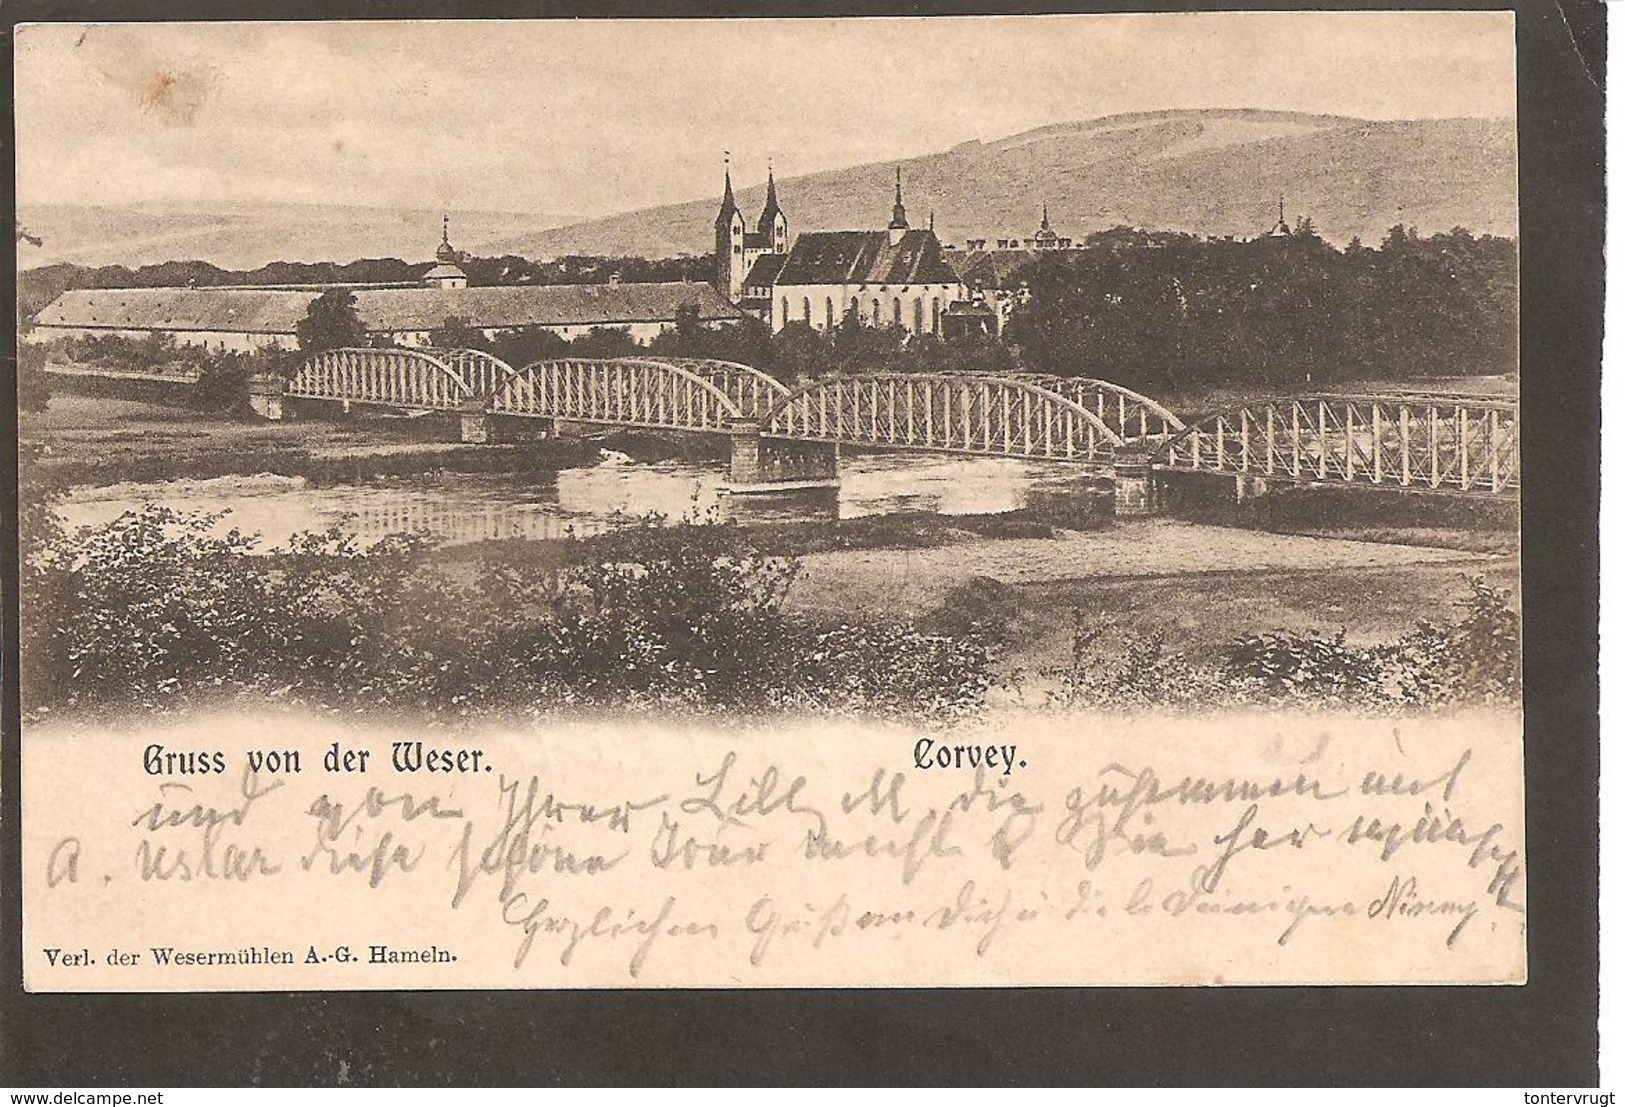 Gruss von der Weser.
Corvey.
und von Ihrer Lilly M, die zusammen mit
A. Uslar diese schöne Tour macht & Sie her wünscht
Herzlichen Gruß an Dich u die l. Deinigen
Verl. der Wesermühlen A.-G. Hameln.
Delcampe.net
tontervrugt